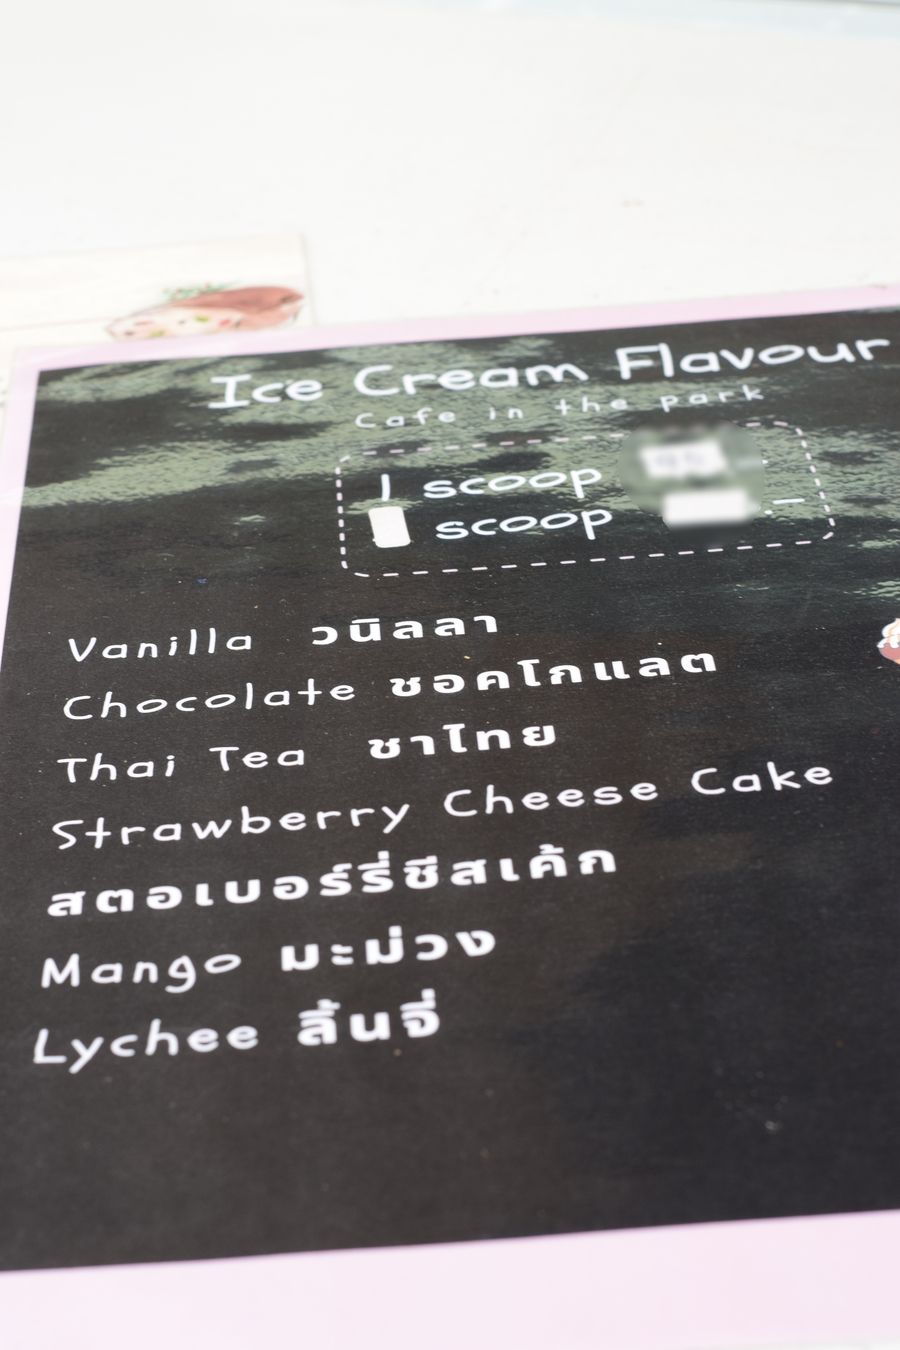 Ice Cream Flavour
Cafe in the park
1 scoop
scoop .-
Vanilla วนิลลา
Chocolate ชอคโกแลต
Thai Tea ชาไทย
Strawberry Cheese Cake
สตอเบอร์รี่ชีสเค้ก
Mango มะม่วง
Lychee ลิ้นจี่